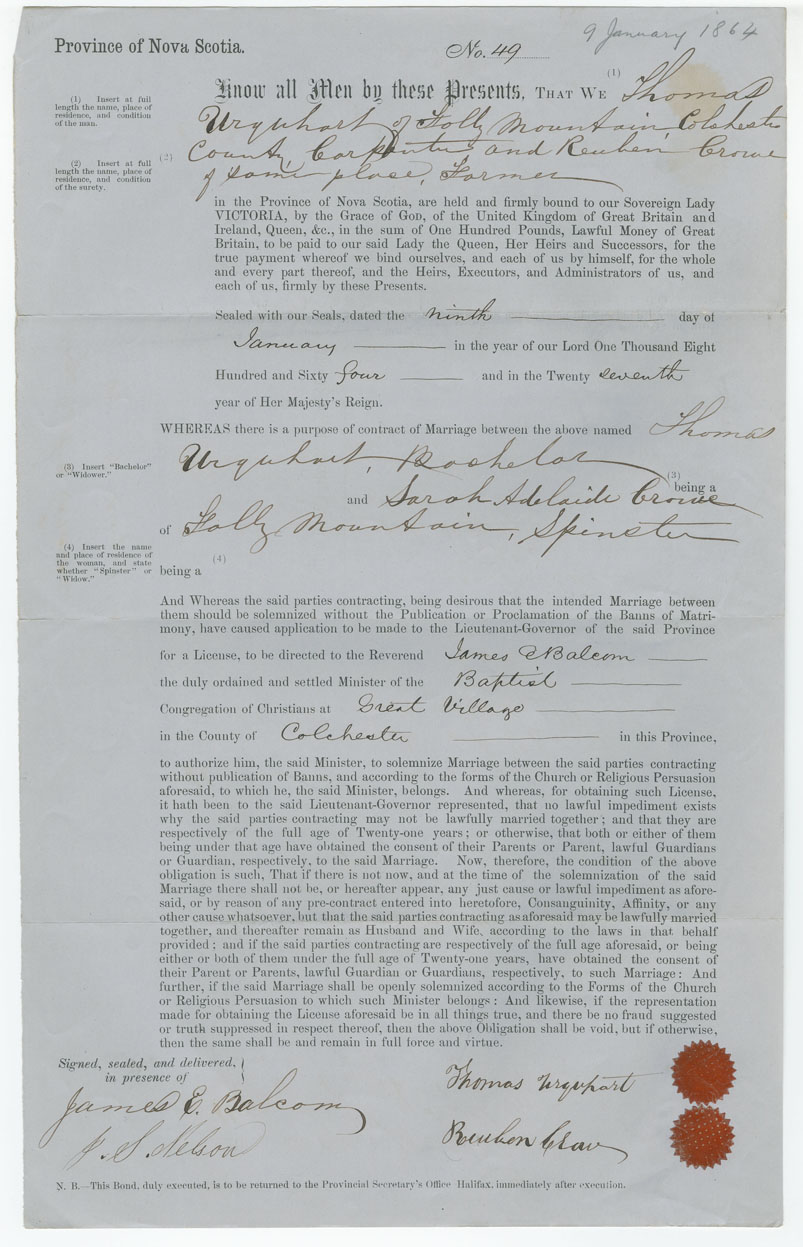 9 January 1864
Province of Nova Scotia.
No. 49
(1) Insert at full
length the name, place of
residence, and condition
of the man.
(2) Insert at full
length the name, place of
residence, and condition
of the surety.
Know all Men by these Presents, THAT WE (1) Thomas
Urquhart of Folly Mountain, Colchester
(2) County, Carpenter and Reuben Crowe
of same place, Farmer
in the Province of Nova Scotia, are held and firmly bound to our Sovereign Lady
VICTORIA, by the Grace of GOD, of the United Kingdom of Great Britain and
Ireland, Queen, &c., in the sum of One Hundred Pounds, Lawful Money of Great
Britain, to be paid to our said Lady the Queen, Her Heirs and Successors, for the
true payment whereof we bind ourselves, and each of us by himself, for the whole
and every part thereof, and the Heirs, Executors, and Administrators of us, and
each of us, firmly by these Presents.
Sealed with our Seals, dated the ninth day of
January in the year of our Lord One Thousand Eight
Hundred and Sixty four and in the Twenty seventh
year of Her Majesty's Reign.
WHEREAS there is a purpose of contract of Marriage between the above named Thomas
(3) Insert "Bachelor"
or "Widower."
Urquhart, Bachelor (3) being a
and Sarah Adelaide Crowe
of Folly Mountain, Spinster
(4) Insert the name
and place of residence of
the woman, and state
whether "Spinster" or
"Widow."
(4)
being a
And Whereas the said parties contracting, being desirous that the intended Marriage between
them should be solemnized without the Publication or Proclamation of the Banns of Matri-
mony, have caused application to be made to the Lieutenant-Governor of the said Province
for a License, to be directed to the Reverend James E Balcom
the duly ordained and settled Minister of the Baptist
Congregation of Christians at Great Village
in the County of Colchester in this Province,
to authorize him, the said Minister, to solemnize Marriage between the said parties contracting
without publication of Banns, and according to the forms of the Church or Religious Persuasion
aforesaid, to which he, the said Minister, belongs. And whereas, for obtaining such License,
it hath been to the said Lieutenant-Governor represented, that no lawful impediment exists
why the said parties contracting may not be lawfully married together; and that they are
respectively of the full age of Twenty-one years; or otherwise, that both or either of them
being under that age have obtained the consent of their Parents or Parent, lawful Guardians
or Guardian, respectively, to the said Marriage. Now, therefore, the condition of the above
obligation is such, That if there is not now, and at the time of the solemnization of the said
Marriage there shall not be, or hereafter appear, any just cause or lawful impediment as afore-
said, or by reason of any pre-contract entered into heretofore, Consanguinity, Affinity, or any
other cause whatsoever, but that the said parties contracting as aforesaid may be lawfully married
together, and thereafter remain as Husband and Wife, according to the laws in that behalf
provided; and if the said parties contracting are respectively of the full age aforesaid, or being
either or both of them under the full age of Twenty-one years, have obtained the consent of
their Parent or Parents, lawful Guardian or Guardians, respectively, to such Marriage: And
further, if the said Marriage shall be openly solemnized according to the Forms of the Church
or Religious Persuasion to which such Minister belongs: And likewise, if the representation
made for obtaining the License aforesaid be in all things true, and there be no fraud suggested
or truth suppressed in respect thereof, then the above Obligation shall be void, but if otherwise,
then the same shall be and remain in full force and virtue.
Signed, sealed, and delivered,
in presence of
James E. Balcom
J. S. Nelson
Thomas Urquhart
Reuben Crow
N. B.—This Bond, duly executed, is to be returned to the Provincial Secretary's Office Halifax, immediately after execution.